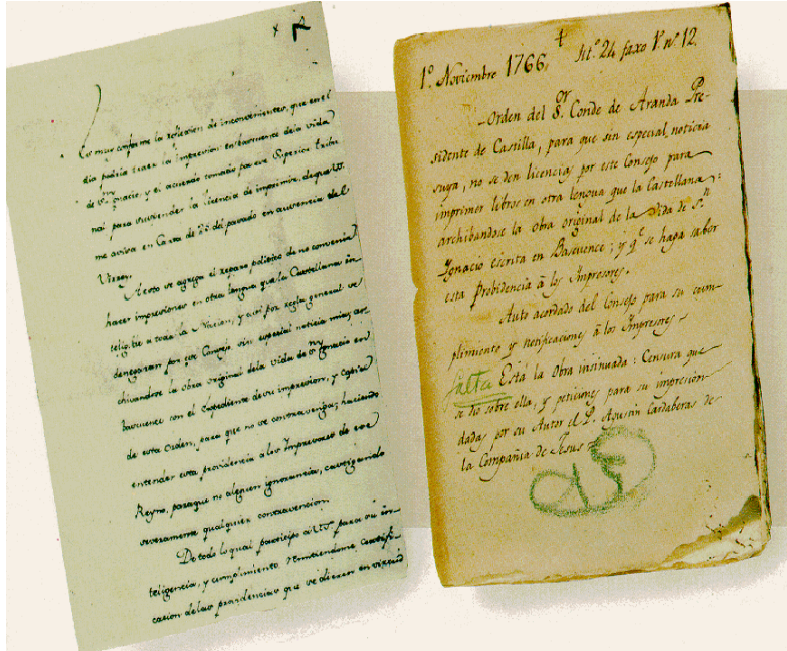 Es muy conforme la reflexion de inconvenientes, que en el
dia podria traer la impresion en bascuence de la vida
de Sn. Ignacio, y el acuerdo tomado por ese Superior Tribu
nal para suspender la licencia de imprimir, de que VS.
me avisa en Carta de 25 del pasado en ausencia del
Virrey.
A esto se agrega el reparo politico de no convenir
hacer impresiones en otra lengua que la Castellana in
teligible a toda la Nacion, y asi por regla general se
denegaran por ese Consejo sin especial noticia mia, ar
chivandose la obra original de la vida de Sn. Ignacio en
bascuence con el Expediente de su impresion, y copia
de esta Orden, para que no se contravenga; haciendo
entender esta providencia a los Impresores de ese
Reyno, para que no aleguen ignorancia, castigando
severamente qualquier contravencion.
De todo lo qual participo a VS. para su in-
teligencia, y cumplimiento, remitiendome Certifi-
cacion de las providencias que se dieren en virtud
1º. Noviembre 1766, + tit.º 24 faxo 1º nº. 12.
Orden del Sor. Conde de Aranda Pre-
sidente de Castilla, para que sin especial noticia
suya, no se den licencias por este Consejo para
imprimir libros en otra lengua que la Castellana:
archibandose la obra original de la Vida de Sn.
Ignacio escrita en Bascuence; y qe. se haga saber
esta Probidencia à los Impresores.
Auto acordado del Consejo para su cum-
plimiento y notificaciones à los Impresores -
falta Està la Obra insinuada: Censura que
se dió sobre ella, y peticiones para su impresion
dadas por su Autor el P. Agustin Cardaberas de
la Compañia de Jesus =